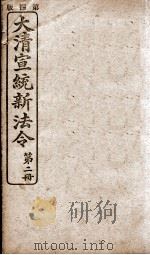 第四版
大清宣統新法令
第二冊
PDG